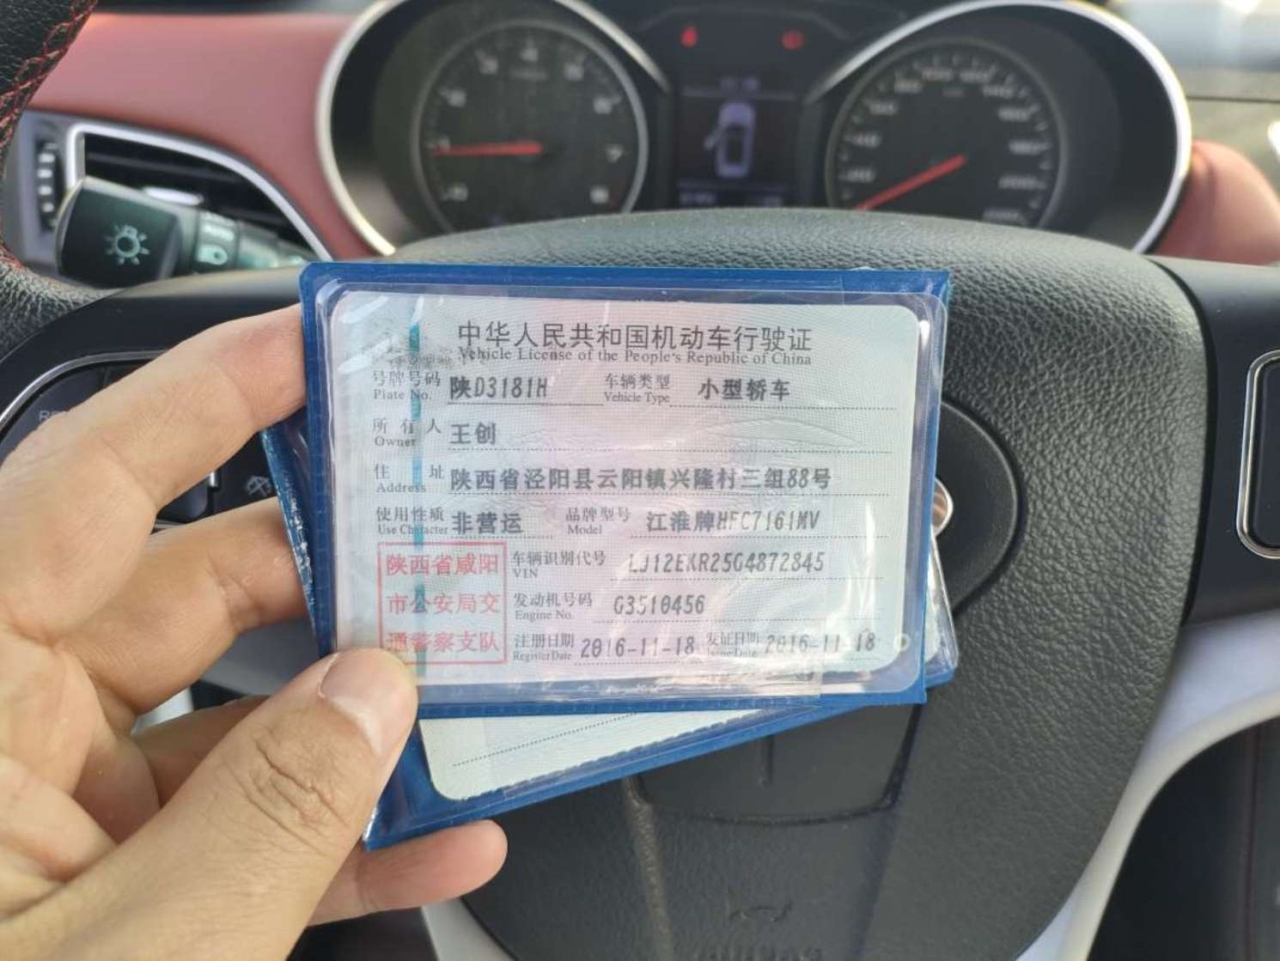 中华人民共和国机动车行驶证
Vehicle License of the People's Republic of China
号牌号码 陕D3181H 车辆类型 小型轿车
Plate No. Vehicle Type
所有人 王创
Owner
住址 陕西省泾阳县云阳镇兴隆村三组88号
Address
使用性质 非营运 品牌型号 江淮牌HFC7161MV
Use Character Model
陕西省咸阳
市公安局交
通警察支队
车辆识别代号 LJ12EKR25G4872845
VIN
发动机号码 G3510456
Engine No.
注册日期 2016-11-18 发证日期 2016-11-18
Register Date Issue Date